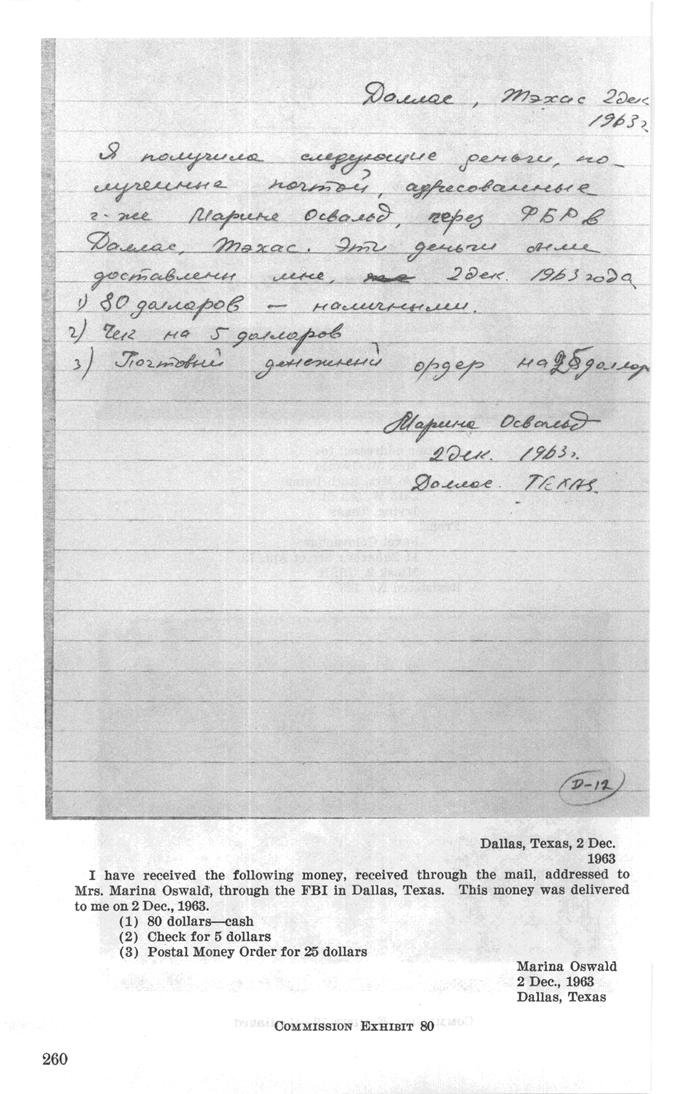 Даллас, Тэхас 2 дек
1963 г
Я получила следующие деньги, по-
лученные почтой, адресованные
г-же Марине Освальд, через ФБР в
Даллас, Тэхас. Эти деньги были
доставлены мне, 2 дек. 1963 года
1) 80 долларов — наличными.
2) Чек на 5 долларов
3) Почтовый денежный ордер на 25 доллар
Марина Освальд
2 дек. 1963 г.
Даллас. TEXAS.
D-12
Dallas, Texas, 2 Dec.
1963
I have received the following money, received through the mail, addressed to
Mrs. Marina Oswald, through the FBI in Dallas, Texas. This money was delivered
to me on 2 Dec., 1963.
(1) 80 dollars—cash
(2) Check for 5 dollars
(3) Postal Money Order for 25 dollars
Marina Oswald
2 Dec., 1963
Dallas, Texas
COMMISSION EXHIBIT 80
260